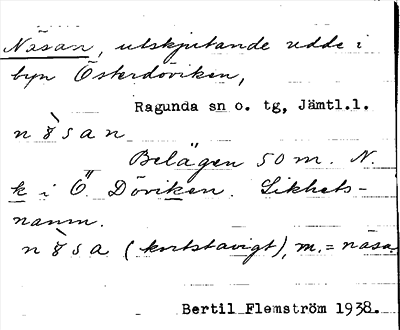 Näsan, utskjutande udde i
byn Österdöviken,
Ragunda sn o. tg, Jämtl.l.
n ȣ̀ s a n
Belägen 50 m. N.
k i Ö. Döviken. Likhets-
namn.
n ȣ̀ s a (kortstavigt), m. = näsa.
Bertil Flemström 1938.